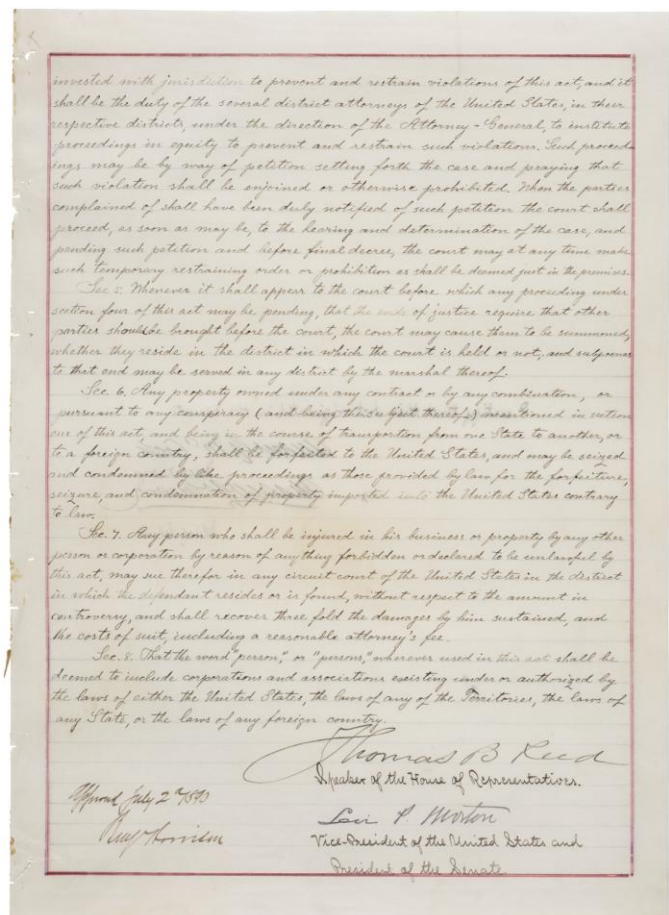 invested with jurisdiction to prevent and restrain violations of this act, and it
shall be the duty of the several district attorneys of the United States, in their
respective districts, under the direction of the Attorney-General, to institute
proceedings in equity to prevent and restrain such violations. Such proceed-
ings may be by way of petition setting forth the case and praying that
such violation shall be enjoined or otherwise prohibited. When the parties
complained of shall have been duly notified of such petition the court shall
proceed, as soon as may be, to the hearing and determination of the case, and
pending such petition and before final decree, the court may at any time make
such temporary restraining order or prohibition as shall be deemed just in the premises.
Sec 5. Whenever it shall appear to the court before which any proceeding under
section four of this act may be pending, that the ends of justice require that other
parties should be brought before the court, the court may cause them to be summoned,
whether they reside in the district in which the court is held or not, and subpoenas
to that end may be served in any district by the marshal thereof.
Sec. 6. Any property owned under any contract or by any combination, or
pursuant to any conspiracy (and being the subject thereof) mentioned in section
one of this act, and being in the course of transportion from one State to another, or
to a foreign country, shall be forfeited to the United States, and may be seized
and condemned by like proceedings as those provided by law for the forfeiture,
seizure, and condemnation of property imported into the United States contrary
to law.
Sec. 7. Any person who shall be injured in his business or property by any other
person or corporation by reason of anything forbidden or declared to be unlawful by
this act, may sue therefor in any circuit court of the United States in the district
in which the defendant resides or is found, without respect to the amount in
controversy, and shall recover three fold the damages by him sustained, and
the costs of suit, including a reasonable attorney's fee.
Sec. 8. That the word "person," or "persons," wherever used in this act shall be
deemed to include corporations and associations existing under or authorized by
the laws of either the United States, the laws of any of the Territories, the laws of
any State, or the laws of any foreign country.
Thomas B Reed
Speaker of the House of Representatives.
Approved July 2d 1890
Levi P. Morton
Benj Harrison
Vice-President of the United States and
President of the Senate.